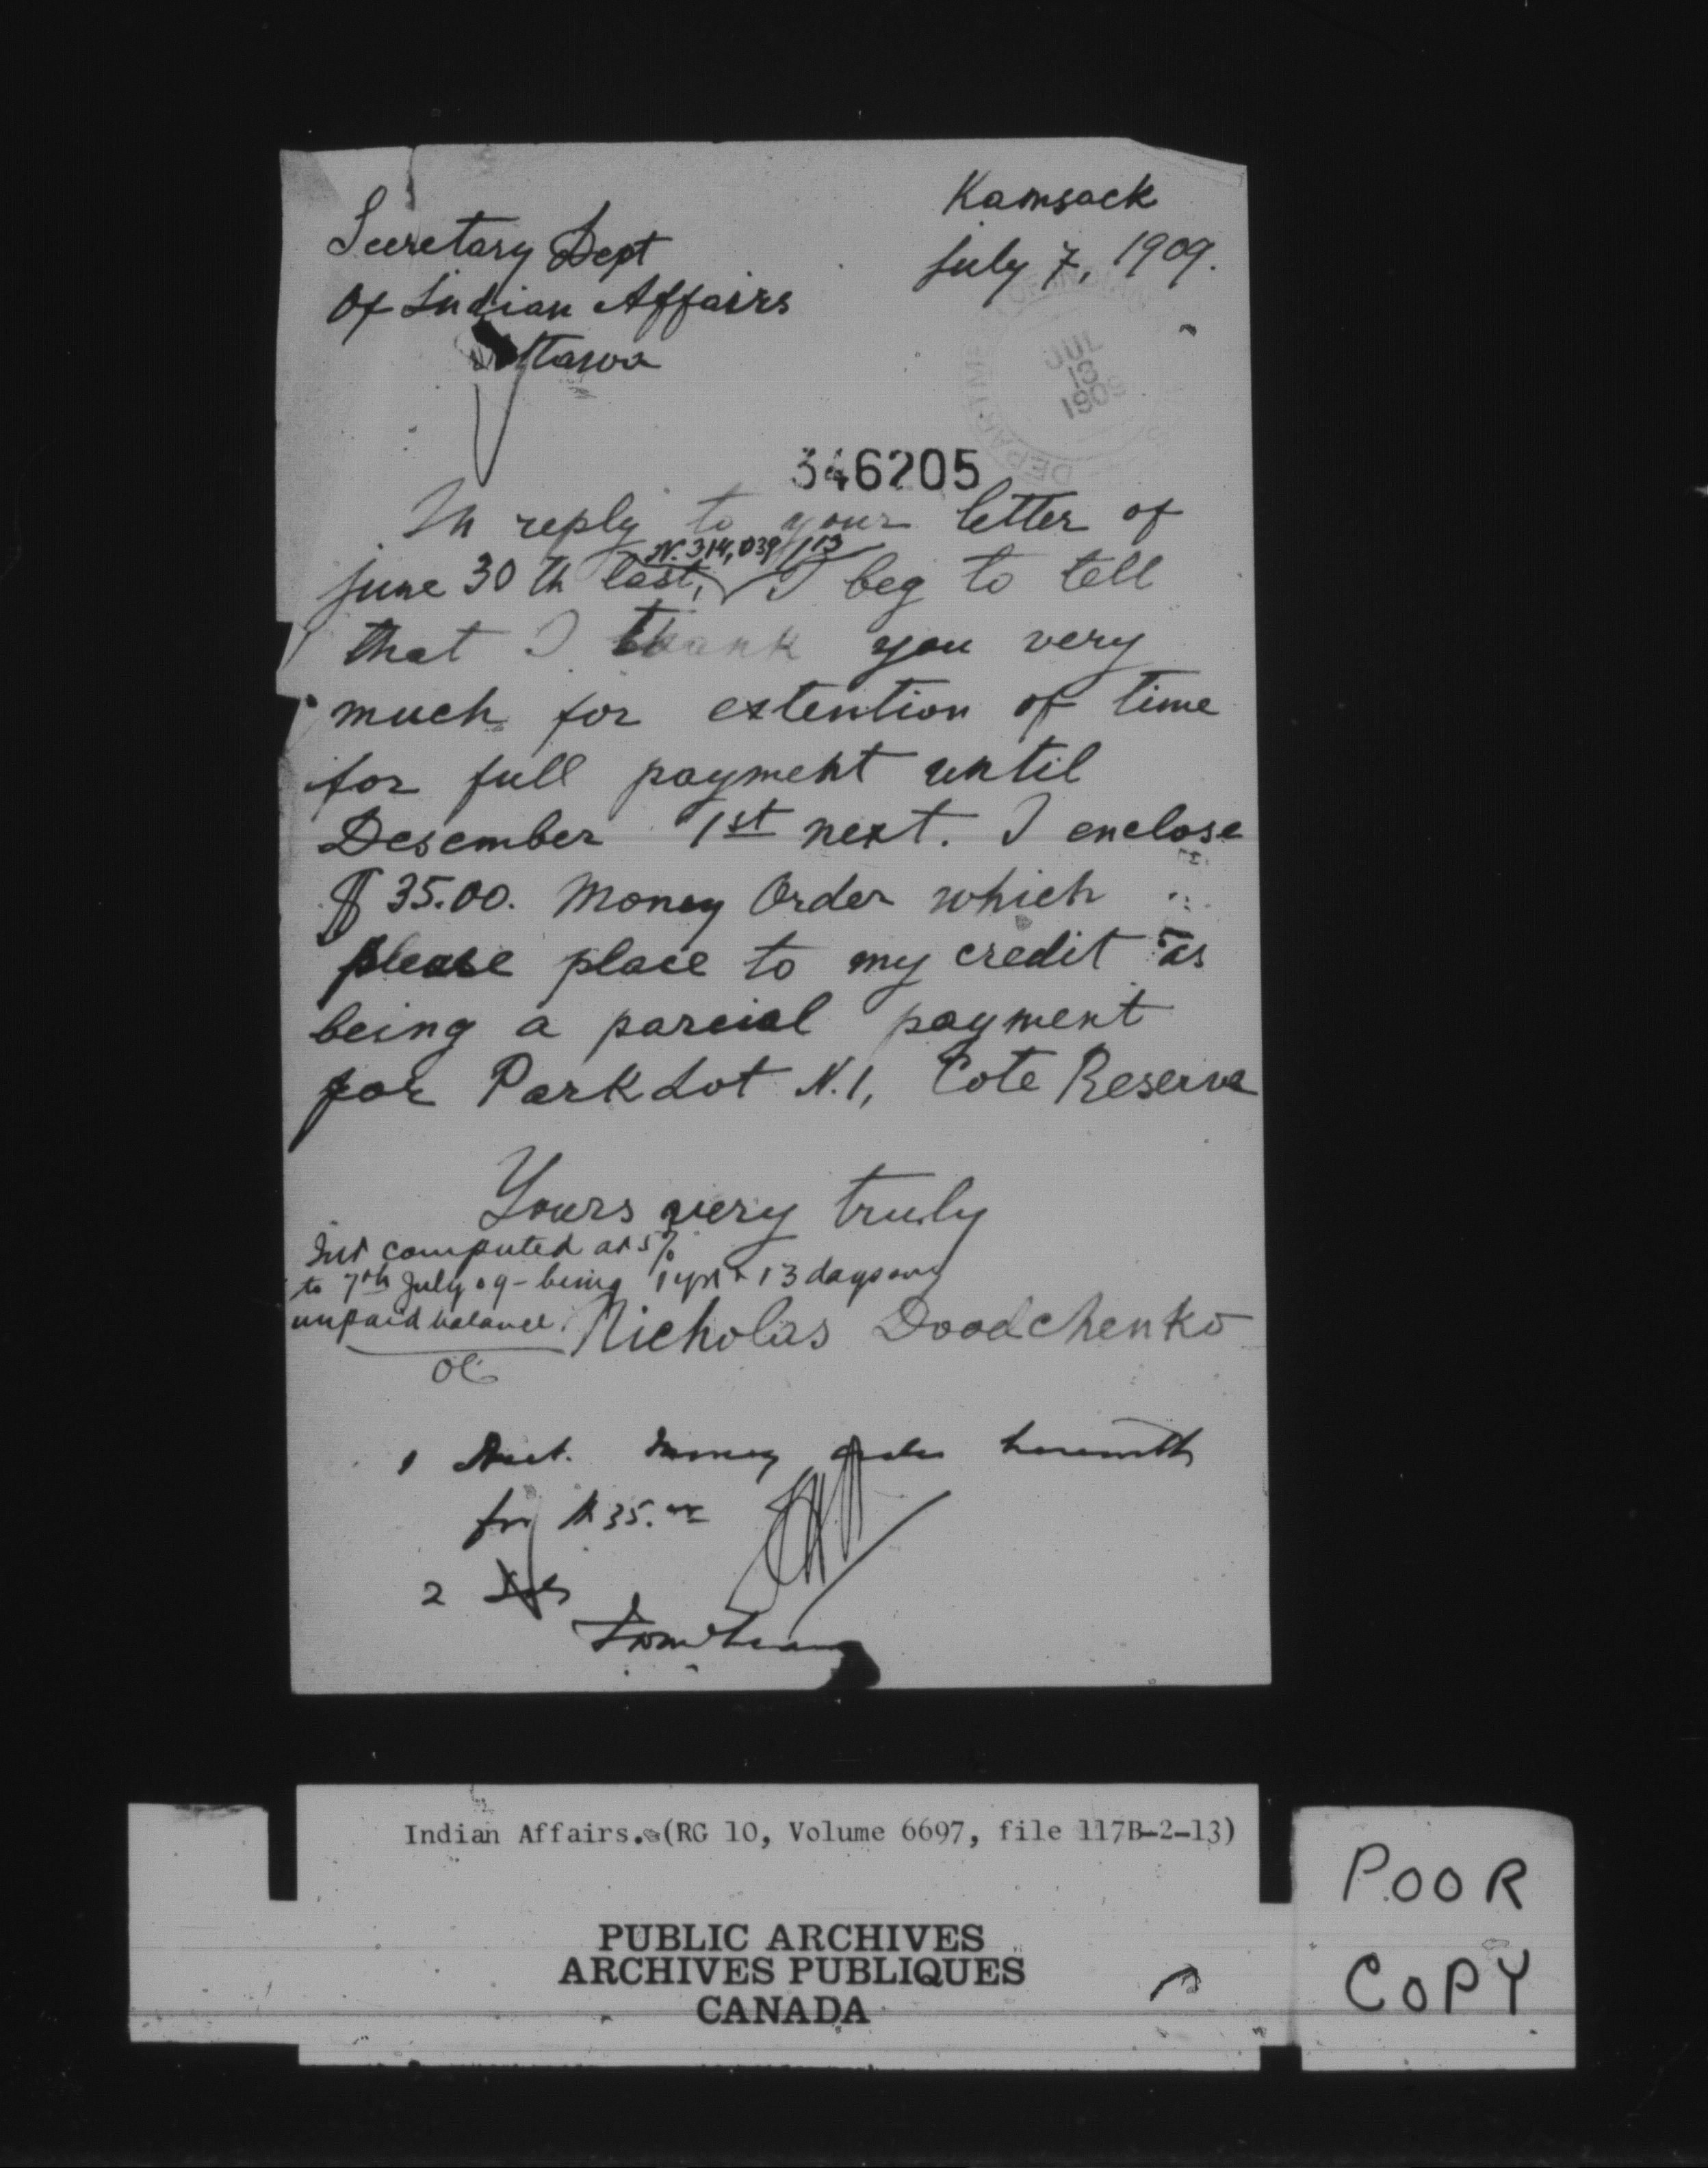 Kamsack
July 7, 1909.
Secretary Dept
Of Indian Affairs
Ottawa
DEPARTMENT OF INDIAN
JUL
13
1909
346205
In reply to your letter of
N. 314,039/113
june 30th last, I beg to tell
that I thank you very
much for extention of time
for full payment until
Desember 1st next. I enclose
$ 35.00. Money Order which
please place to my credit as
being a parcial payment
for Park Lot N.1, Cote Reserve
Yours very truly
Int computed at 5%
to 7th July 09 - being 1 yr & 13 days on
unpaid balance.
Nicholas Doodchenko
1 Acct. Money order herewith
for $35.00
2
Indian Affairs. (RG 10, Volume 6697, file 117B-2-13)
PUBLIC ARCHIVES
ARCHIVES PUBLIQUES
CANADA
POOR
COPY